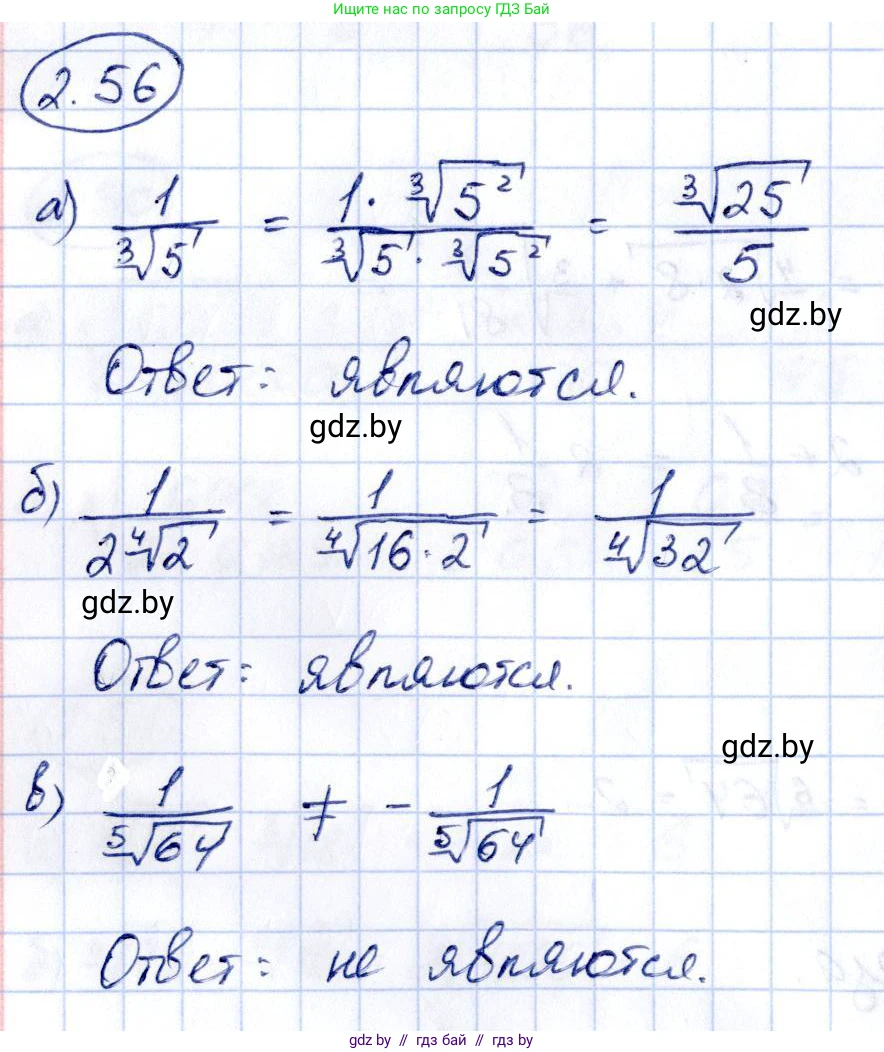 Ищите нас по запросу ГДЗ Бай
2.56
а) 1/∛5 = 1·∛5²/(∛5·∛5²) = ∛25/5
gdz.by
Ответ: являются.
gdz.by
б) 1/(2∜2) = 1/∜(16·2) = 1/∜32
gdz.by
Ответ: являются.
gdz.by
в) 1/⁵√64 ≠ - 1/⁵√64
Ответ: не являются.
gdz by // гдз бай // gdz by